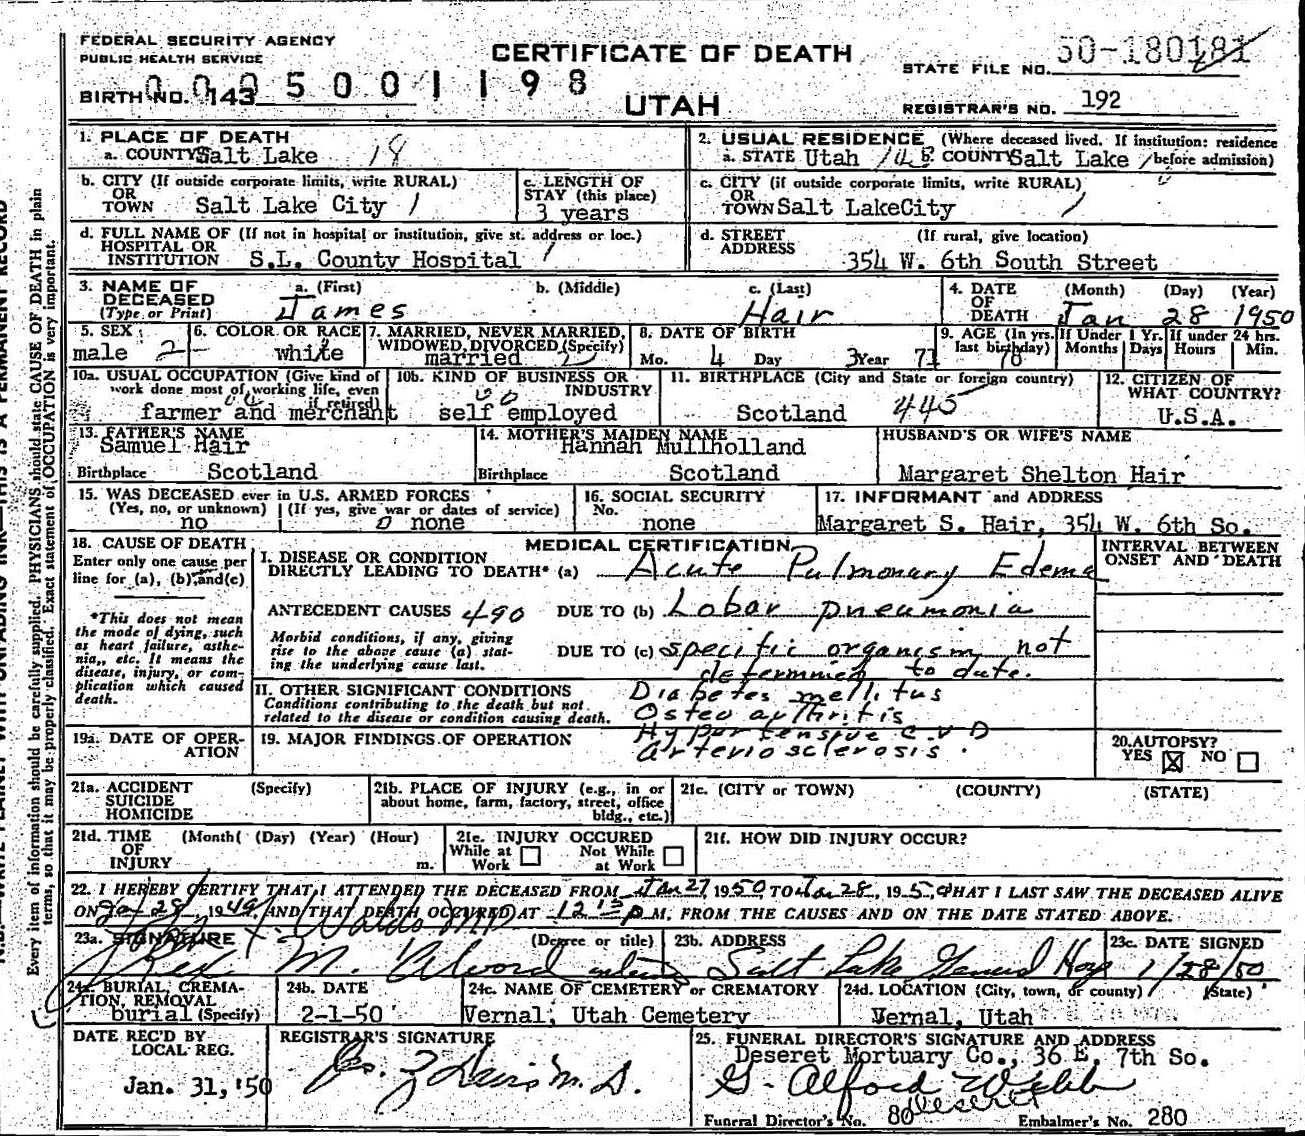 FEDERAL SECURITY AGENCY
PUBLIC HEALTH SERVICE
CERTIFICATE OF DEATH
STATE FILE NO. 50-180181
BIRTH NO. 143
0005001198
UTAH
REGISTRAR'S NO. 192
1. PLACE OF DEATH
a. COUNTY Salt Lake 18
2. USUAL RESIDENCE (Where deceased lived. If institution: residence
a. STATE Utah b. COUNTY Salt Lake before admission)
b. CITY (If outside corporate limits, write RURAL)
OR
TOWN Salt Lake City 1
c. LENGTH OF
STAY (this place)
3 years
c. CITY (if outside corporate limits, write RURAL)
OR
TOWN Salt LakeCity 1
d. FULL NAME OF (If not in hospital or institution, give st. address or loc.)
HOSPITAL OR
INSTITUTION S.L. County Hospital 1
d. STREET (If rural, give location)
ADDRESS
354 W. 6th South Street
3. NAME OF
DECEASED
(Type or Print)
a. (First) b. (Middle) c. (Last)
James Hair
4. DATE (Month) (Day) (Year)
OF
DEATH Jan 28 1950
5. SEX
male 2
6. COLOR OR RACE
white
7. MARRIED, NEVER MARRIED,
WIDOWED, DIVORCED (Specify)
married 2
8. DATE OF BIRTH
Mo. 4 Day 3 Year 71
9. AGE (In yrs.
last birthday)
78
If Under 1 Yr.
Months Days
If under 24 hrs.
Hours Min.
10a. USUAL OCCUPATION (Give kind of
work done most of working life, even
if retired)
farmer and merchant
10b. KIND OF BUSINESS OR
INDUSTRY
self employed
11. BIRTHPLACE (City and State or foreign country)
Scotland 445
12. CITIZEN OF
WHAT COUNTRY?
U.S.A.
13. FATHER'S NAME
Samuel Hair
Birthplace Scotland
14. MOTHER'S MAIDEN NAME
Hannah Mullholland
Birthplace Scotland
HUSBAND'S OR WIFE'S NAME
Margaret Shelton Hair
15. WAS DECEASED ever in U.S. ARMED FORCES
(Yes, no, or unknown) (If yes, give war or dates of service)
no 0 none
16. SOCIAL SECURITY
No.
none
17. INFORMANT and ADDRESS
Margaret S. Hair, 354 W. 6th So.
18. CAUSE OF DEATH
Enter only one cause per
line for (a), (b) and (c)
*This does not mean
the mode of dying, such
as heart failure, asthe-
nia,, etc. It means the
disease, injury, or com-
plication which caused
death.
MEDICAL CERTIFICATION
I. DISEASE OR CONDITION
DIRECTLY LEADING TO DEATH* (a) Acute Pulmonary Edema
ANTECEDENT CAUSES 490 DUE TO (b) Lobar pneumonia
Morbid conditions, if any, giving
rise to the above cause (a) stat-
ing the underlying cause last.
DUE TO (c) specific organism not
determined to date.
INTERVAL BETWEEN
ONSET AND DEATH
II. OTHER SIGNIFICANT CONDITIONS
Conditions contributing to the death but not
related to the disease or condition causing death.
Diabetes mellitus
Osteo arthritis
Hypertensive C.V D
arteriosclerosis.
19a. DATE OF OPER-
ATION
19. MAJOR FINDINGS OF OPERATION
20. AUTOPSY?
YES X NO
21a. ACCIDENT (Specify)
SUICIDE
HOMICIDE
21b. PLACE OF INJURY (e.g., in or
about home, farm, factory, street, office
bldg., etc.)
21c. (CITY or TOWN) (COUNTY) (STATE)
21d. TIME (Month( (Day) (Year) (Hour)
OF
INJURY m.
21e. INJURY OCCURED
While at Work Not While at Work
21f. HOW DID INJURY OCCUR?
22. I HEREBY CERTIFY THAT I ATTENDED THE DECEASED FROM Jan 27 1950 TO Jan 28, 1950 THAT I LAST SAW THE DECEASED ALIVE
ON Jan 28, 1949, AND THAT DEATH OCCURED AT 12 15 P M, FROM THE CAUSES AND ON THE DATE STATED ABOVE.
23a. SIGNATURE (Degree or title)
Waldo MD
Rex M. Alvord
23b. ADDRESS
Salt Lake General Hosp
23c. DATE SIGNED
1/28/50
24a. BURIAL, CREMA-
TION, REMOVAL
burial (Specify)
24b. DATE
2-1-50
24c. NAME OF CEMETERY or CREMATORY
Vernal, Utah Cemetery
24d. LOCATION (City, town, or county) (State)
Vernal, Utah
DATE REC'D BY
LOCAL REG.
Jan. 31, '50
REGISTRAR'S SIGNATURE
M.D.
25. FUNERAL DIRECTOR'S SIGNATURE AND ADDRESS
Deseret Mortuary Co., 36 E. 7th So.
G. Alford Webb
Deseret
Funeral Director's No. 80 Embalmer's No. 280
Every item of information should be carefully supplied. PHYSICIANS should state CAUSE OF DEATH in plain
terms, so that it may be properly classified. Exact statement of OCCUPATION is very important.